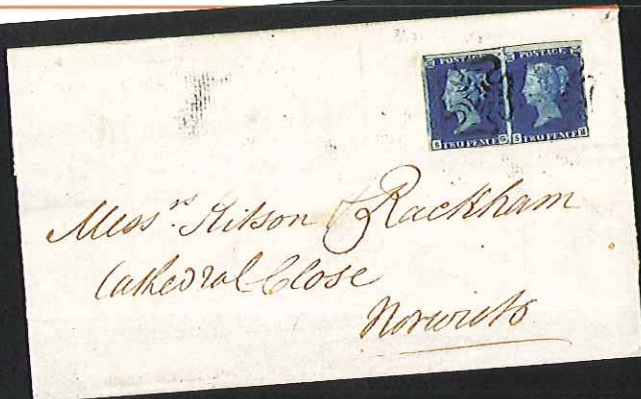 POSTAGE POSTAGE
S TWO PENCE G S TWO PENCE H
Messrs. Kitson & Rackham
Cathedral Close
Norwich